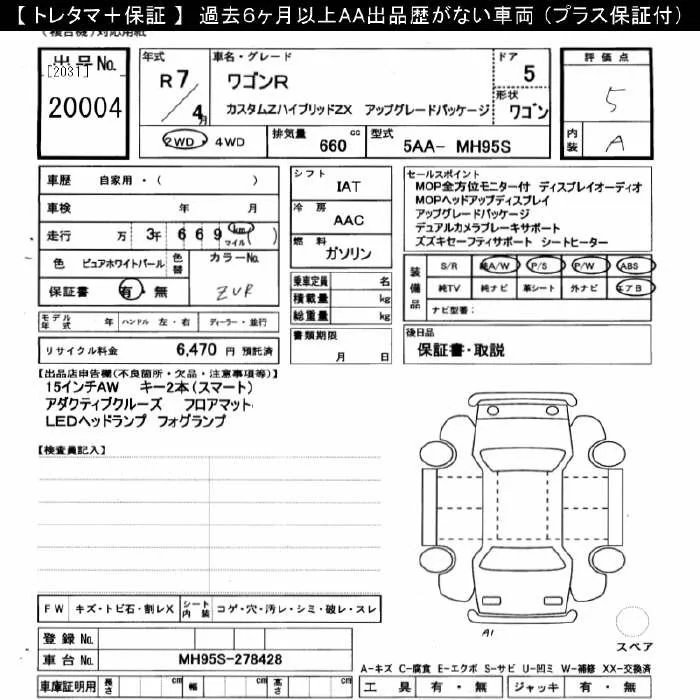 【 トレタマ＋保証 】 過去6ヶ月以上AA出品歴がない車両（プラス保証付）
出品No.
[2031]
20004
年式
R7/4月
車名・グレード
ワゴンR
カスタムZハイブリッドZX アップグレードパッケージ
ドア
5
形状
ワゴン
評価点
5
内装
A
2WD・4WD
排気量
660 CC
型式
5AA- MH95S
車歴 自家用・( )
車検 年 月
走行 万 3千 6 6 9 km マイル ( )
色 ピュアホワイトパール
色替
カラーNo.
ZVR
保証書 有・無
モデル年式 年 ハンドル 左・右 ディーラー・並行
リサイクル料金 6,470 円 預託済
シフト
IAT
冷房
AAC
燃料
ガソリン
乗車定員 名
積載量 kg
総重量 kg
書類期限
月 日
セールスポイント
MOP全方位モニター付 ディスプレイオーディオ
MOPヘッドアップディスプレイ
アップグレードパッケージ
デュアルカメラブレーキサポート
スズキセーフティサポート シートヒーター
装備品
S/R 純A/W P/S P/W ABS
純TV 純ナビ 革シート 外ナビ エアB
ナビ型番：
後日品
保証書・取説
【出品店申告欄(不良箇所・欠品・注意事項等)】
15インチAW キー2本(スマート)
アダクティブクルーズ フロアマット
LEDヘッドランプ フォグランプ
【検査員記入】
FW キズ・トビ石・割レX
シート内装 コゲ・穴・汚レ・シミ・破レ・スレ
登録 No.
車台 No. MH95S-278428
車庫証明用 長さ cm 幅 cm 高さ cm
A1
スペア
A-キズ C-腐食 E-エクボ S-サビ U-凹ミ W-補修 XX-交換済
工具 有・無 ジャッキ 有・無